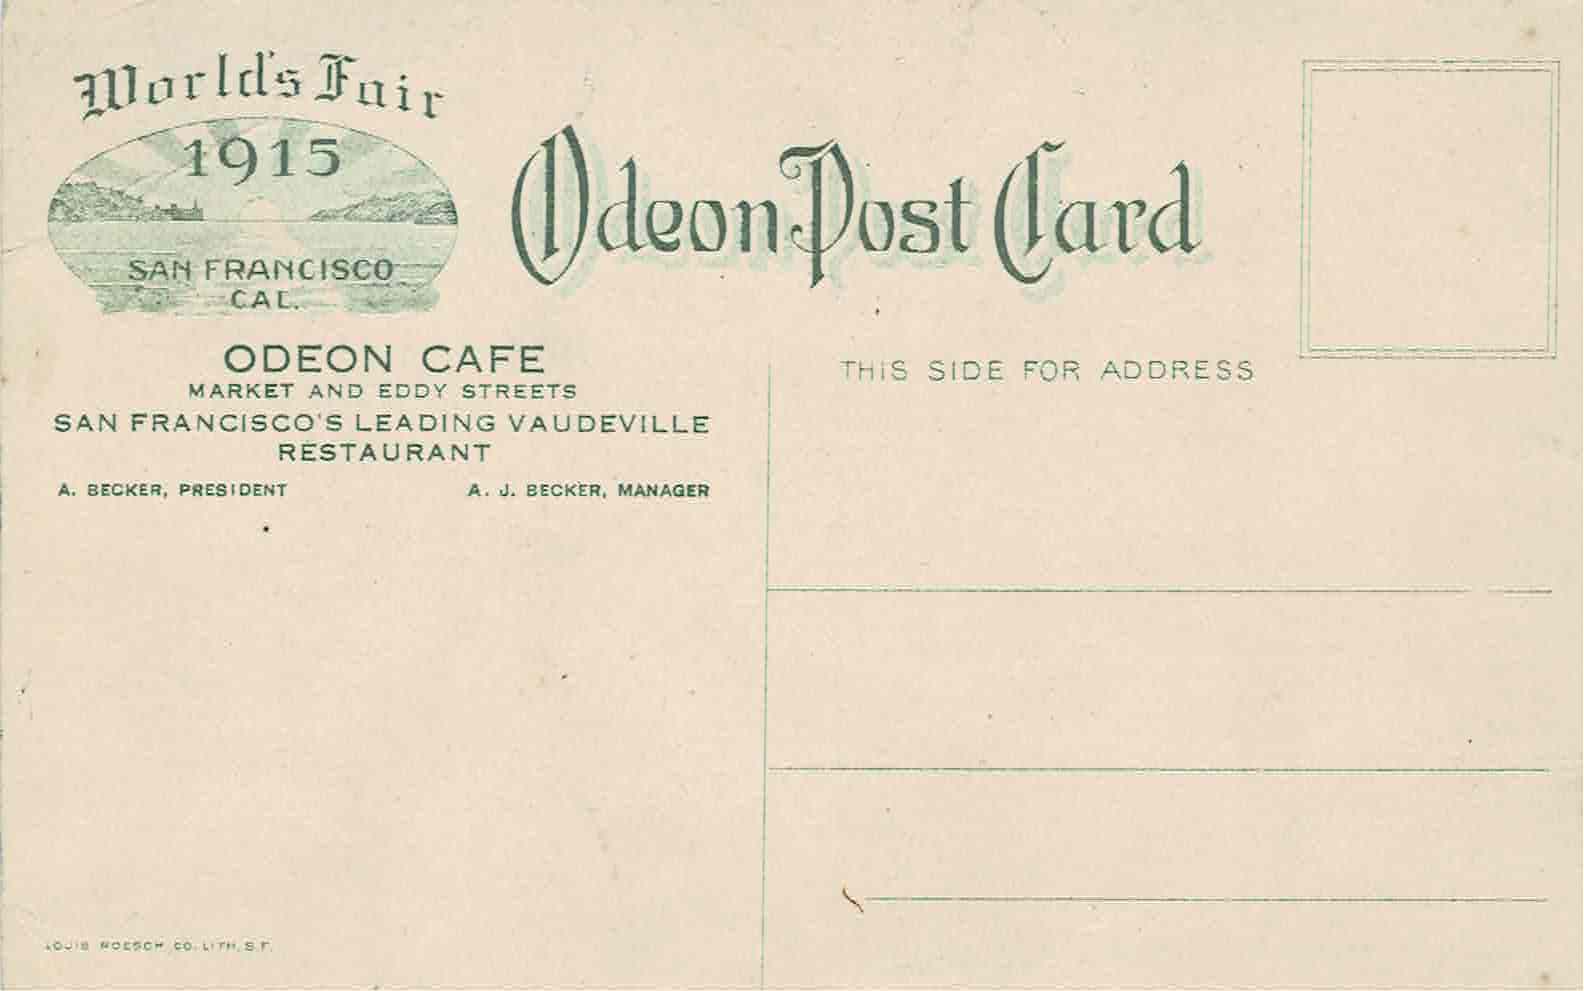 World's Fair
1915
SAN FRANCISCO
CAL.
Odeon Post Card
ODEON CAFE
MARKET AND EDDY STREETS
SAN FRANCISCO'S LEADING VAUDEVILLE
RESTAURANT
A. BECKER, PRESIDENT
A. J. BECKER, MANAGER
THIS SIDE FOR ADDRESS
LOUIS ROESCH CO. LITH. S.F.